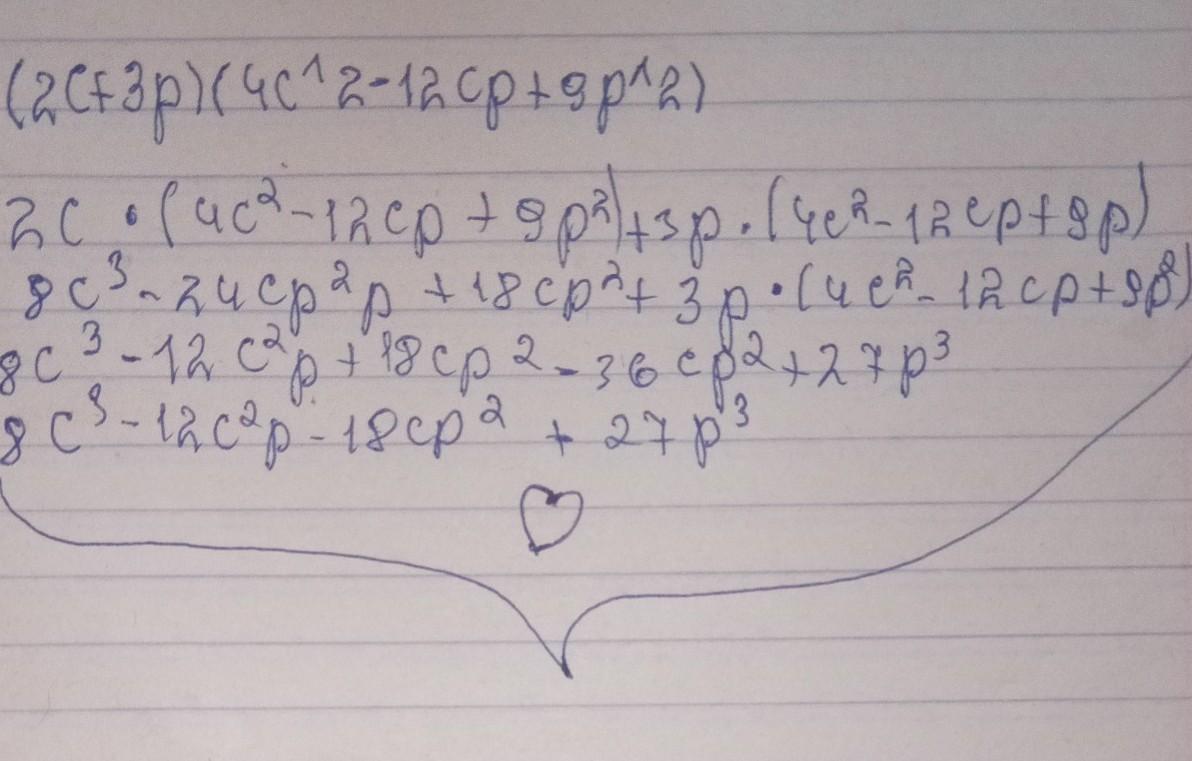 (2c+3p)(4c^2-12cp+9p^2)
2c•(4c²-12cp+9p²)+3p•(4c²-12cp+9p)
8c³-24cp²p+18cp²+3p•(4c²-12cp+9p²)
8c³-12c²p+18cp²-36cp²+27p³
8c³-12c²p-18cp²+27p³